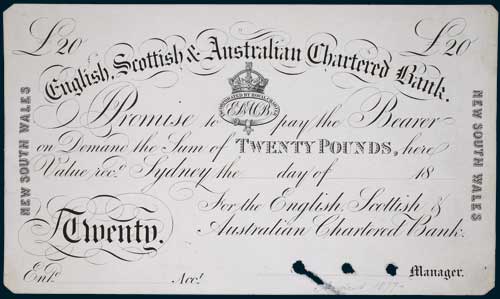 £20 £20
English, Scottish & Australian Chartered Bank.
INCORPORATED BY ROYAL CHARTER
Promise to pay the Bearer
on Demand the Sum of TWENTY POUNDS, here
Value recd. Sydney the day of 18
For the English, Scottish &
Australian Chartered Bank.
Twenty.
Entd. Acct. Manager.
NEW SOUTH WALES
NEW SOUTH WALES